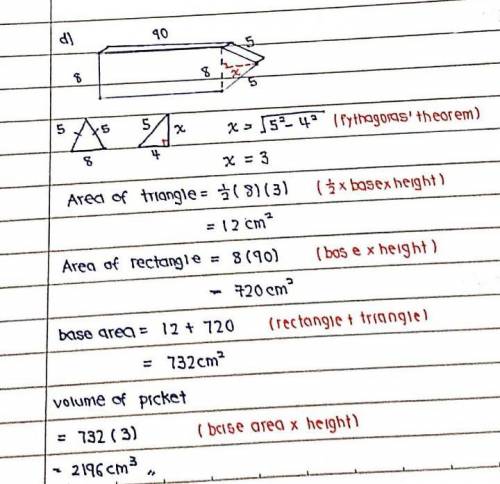 d)
90
5
8
8
x
5
5 5 8
5 x 4
x = √5² - 4² (Pythagoras' theorem)
x = 3
Area of triangle = ½ (8)(3) (½ x base x height)
= 12 cm²
Area of rectangle = 8(90) (base x height)
= 720 cm²
base area = 12 + 720 (rectangle + triangle)
= 732 cm²
volume of picket
= 732 (3) (base area x height)
= 2196 cm³ "